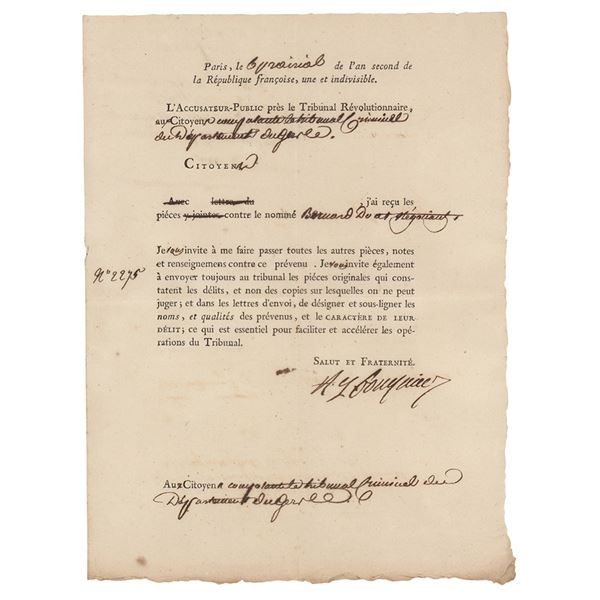 Paris, le 6 prairial de l'an second de
la République françoise, une et indivisible.
L'Accusateur-Public près le Tribunal Révolutionnaire,
aux Citoyens composant le tribunal Criminel
du Département du
Citoyens
Avec lettre du j'ai reçu les
piéces y jointes contre le nommé Bernard négociant
Je vous invite à me faire passer toutes les autres pièces, notes
et renseignemens contre ce prévenu . Je vous invite également
N° 2275
à envoyer toujours au tribunal les piéces originales qui cons-
tatent les délits, et non des copies sur lesquelles on ne peut
juger ; et dans les lettres d'envoi, de désigner et sous-ligner les
noms, et qualités des prévenus, et le CARACTÈRE DE LEUR
DÉLIT ; ce qui est essentiel pour faciliter et accélérer les opé-
rations du Tribunal.
Salut et Fraternité.
A. Q. Fouquier
Aux Citoyens composant le tribunal Criminel du
Département du